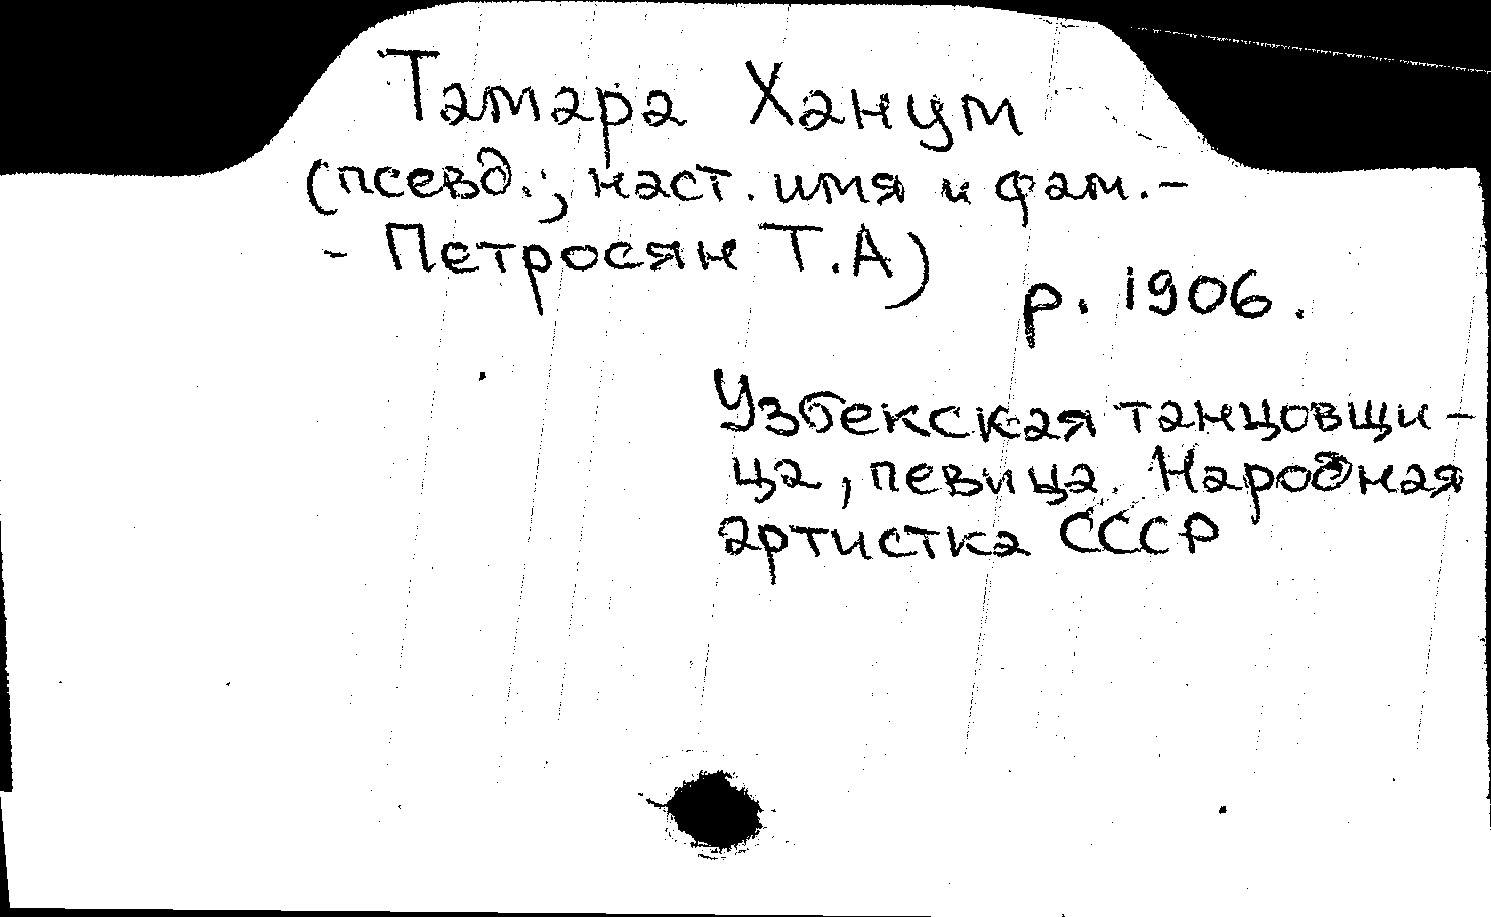 Тамара Ханум
(псевд.; наст. имя и фам. -
- Петросян Т.А)
р. 1906.
Узбекская танцовщи -
ца, певица. Народная
артистка СССР